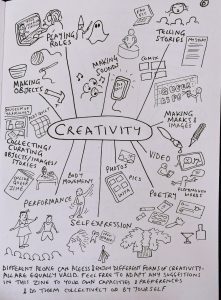 PLAYING
ROLES
TELLING
STORIES
MAKING
SOUND
COMIX
MAKING
OBJECTS
CREATIVITY
MAKING
MARKS &
IMAGES
COLLECTING/
CURATING
OBJECTS/IMAGES/
STORIES
VIDEO
PHOTOS
PICS
BODY
MOVEMENT
POETRY
PERFORMANCE
SELF EXPRESSION
DIFFERENT PEOPLE CAN ACCESS & ENJOY DIFFERENT FORMS OF CREATIVITY-
ALL ARE EQUALLY VALID. FEEL FREE TO ADAPT ANY SUGGESTIONS
IN THIS ZINE TO YOUR OWN CAPACITIES & PREFERENCES
& DO THEM COLLECTIVELY OR BY YOURSELF